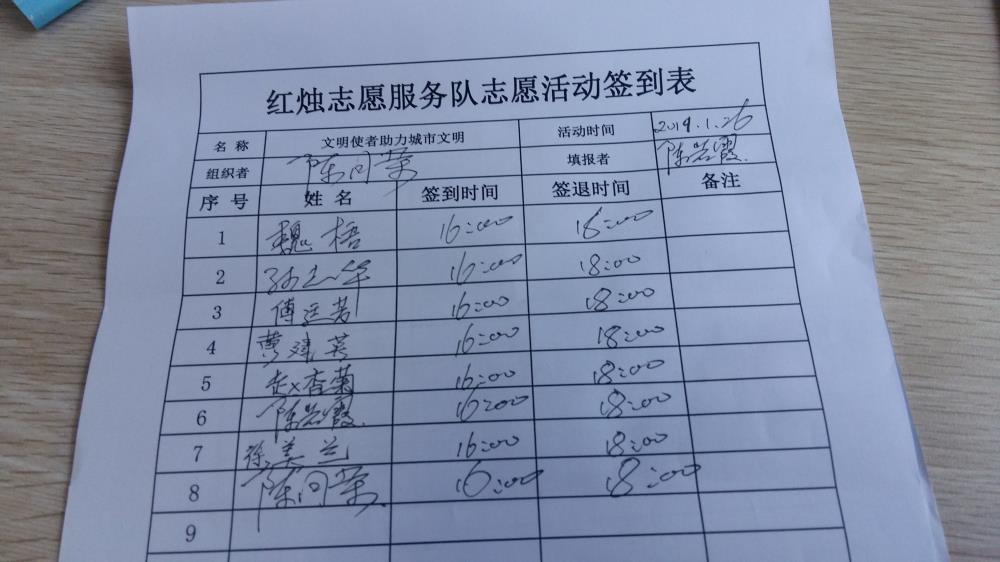 红烛志愿服务队志愿活动签到表
名 称 文明使者助力城市文明 活动时间 2019.1.26
组织者 陈问荣 填报者 陈岩霞
序 号 姓 名 签到时间 签退时间 备注
1 魏 梧 16:00 18:00
2 孙 16:00 18:00
3 傅廷芳 16:00 18:00
4 黄建英 16:00 18:00
5 赵杏菊 16:00 18:00
6 陈岩霞 16:00 18:00
7 徐美兰 16:00 18:00
8 陈问荣 16:00 18:00
9